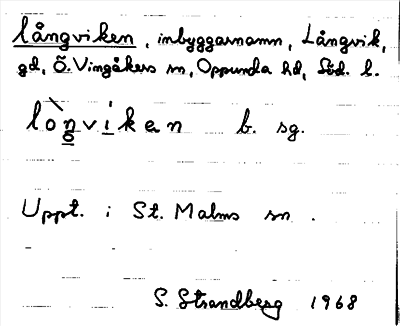 långviken, inbyggarnamn, Långvik,
gd, Ö. Vingåkers sn, Oppunda hd, Söd. l.
lòn̲gvi̲ken b. sg.
Uppt. i St. Malms sn.
S. Strandberg 1968